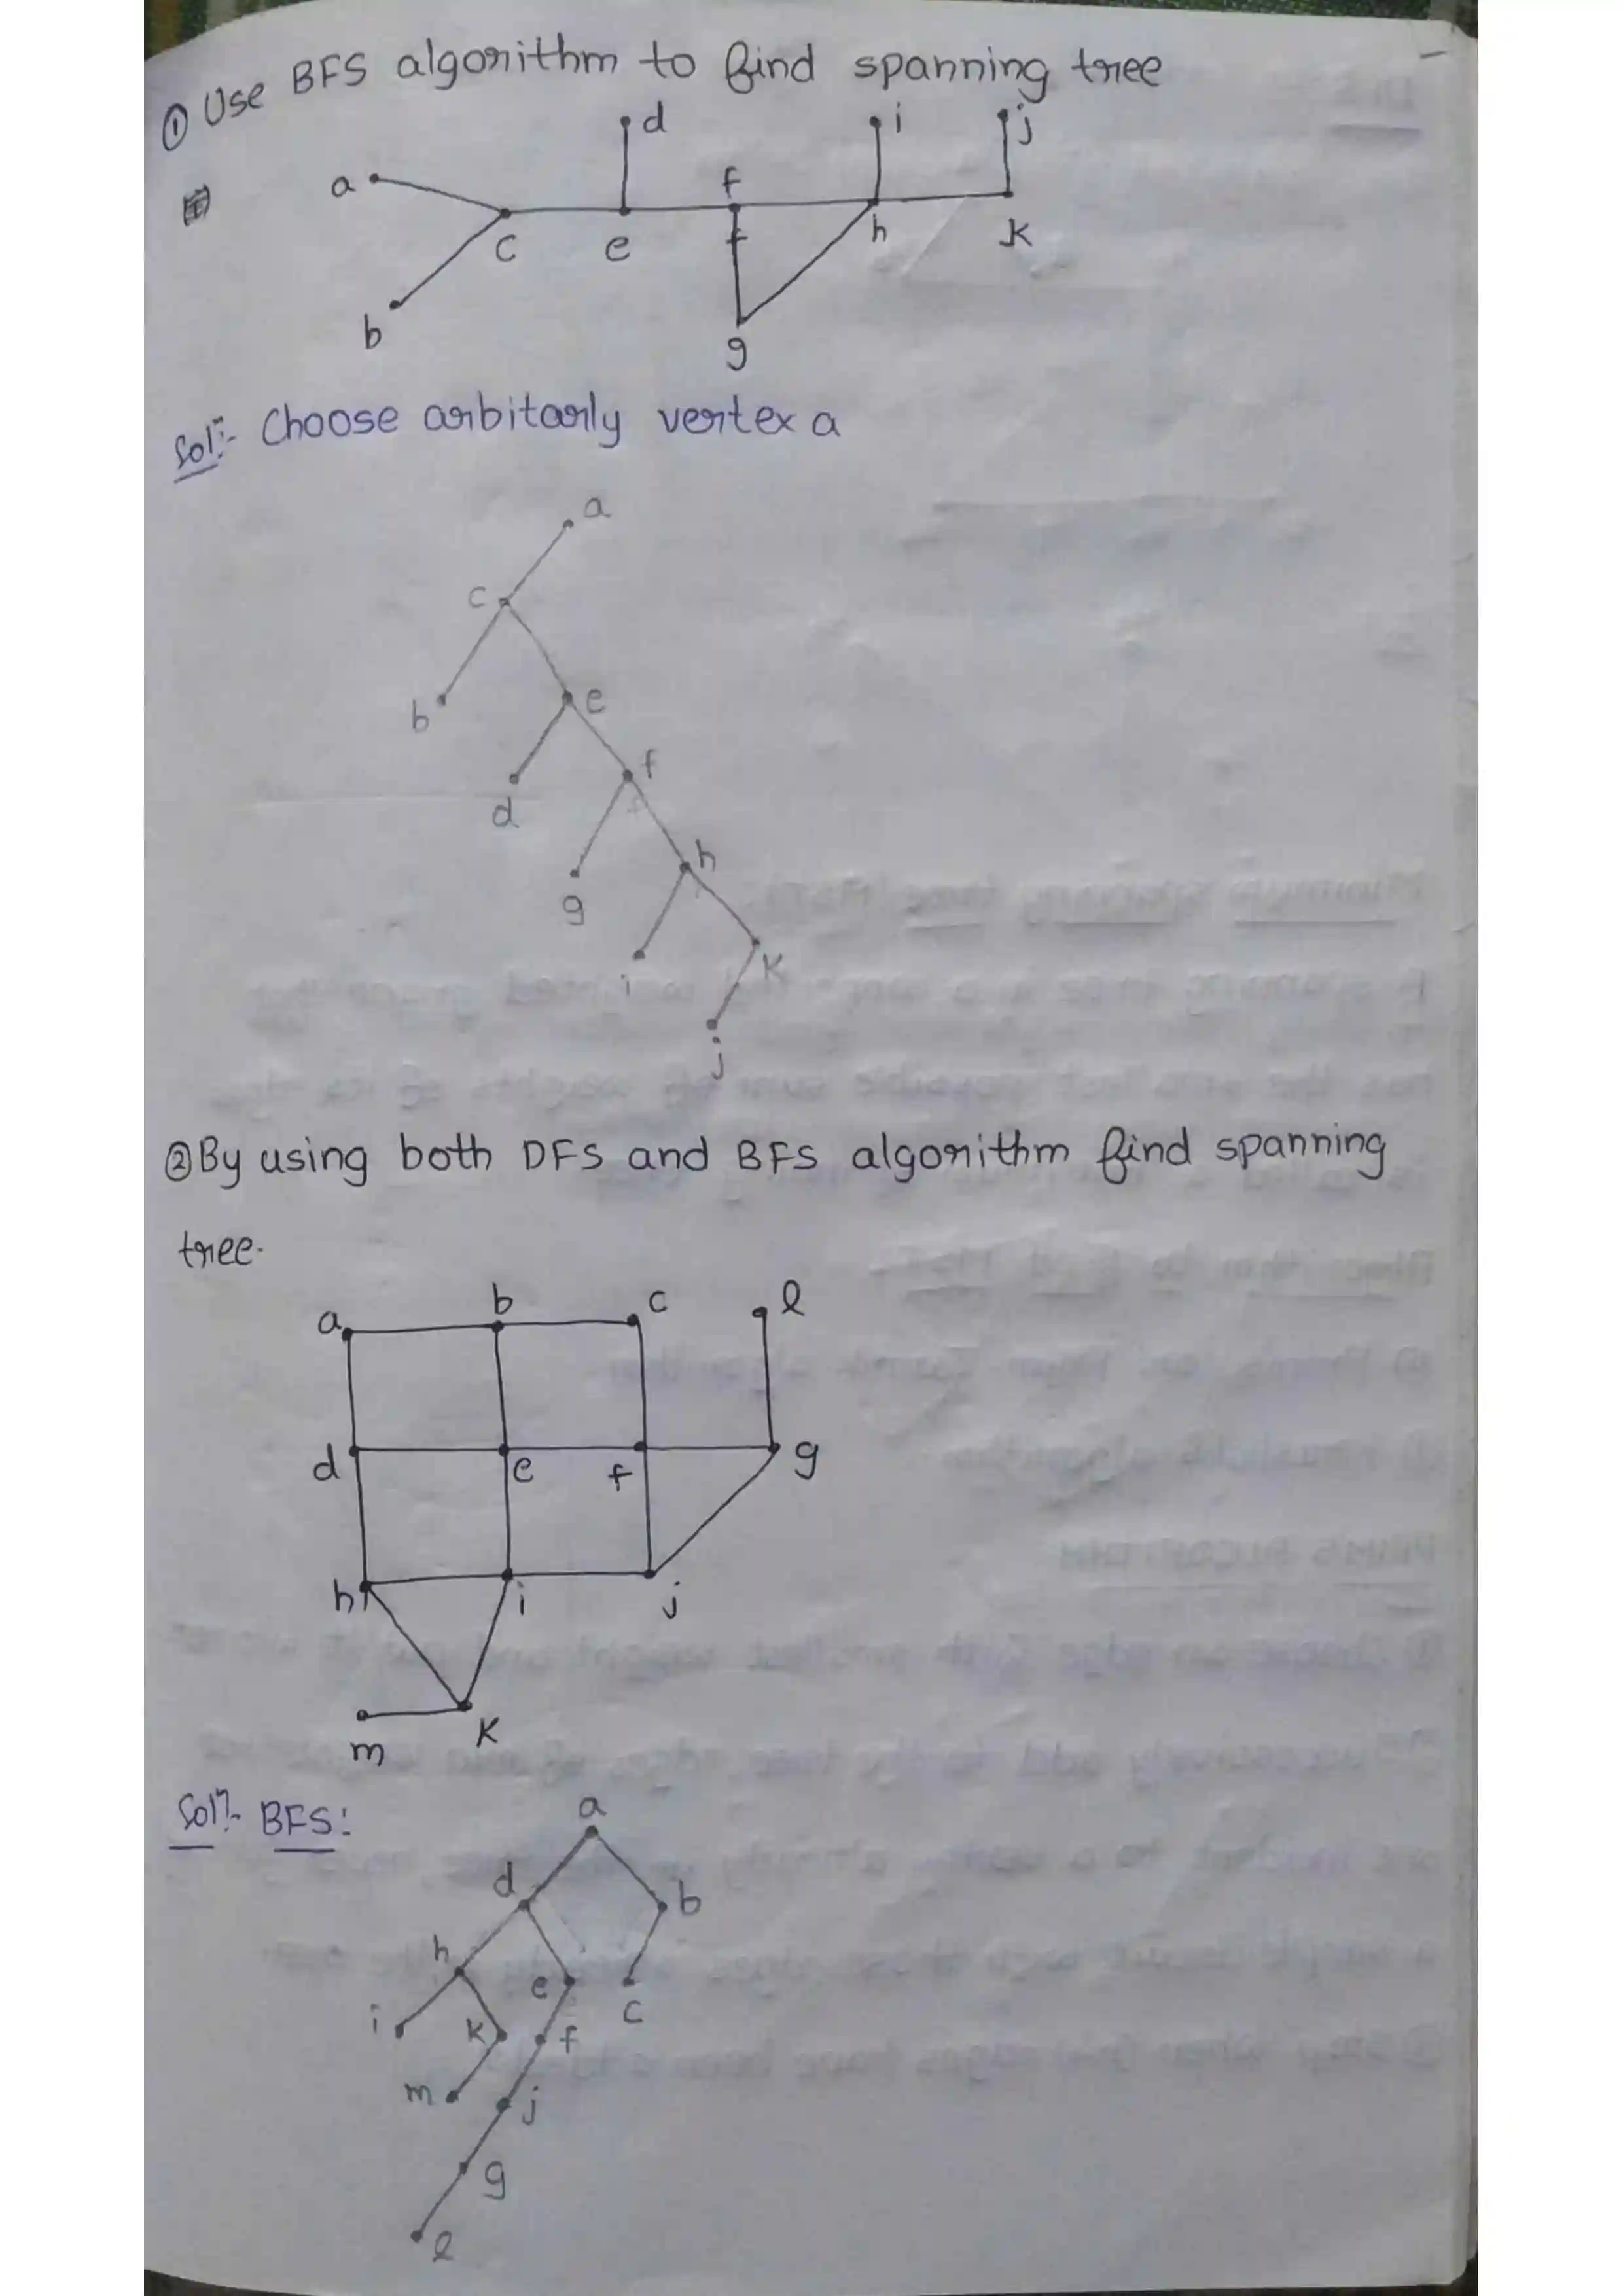 ① Use BFS algorithm to find spanning tree
d i j
a f
c e f h k
b g
Sol:- Choose arbitarly vertex a
a
c
b e
d f
g h
i k
j
② By using both DFS and BFS algorithm find spanning
tree.
a b c l
d e f g
h i j
m k
Solⁿ:- BFS:
a
d b
h e c
i k f
m j
g
l